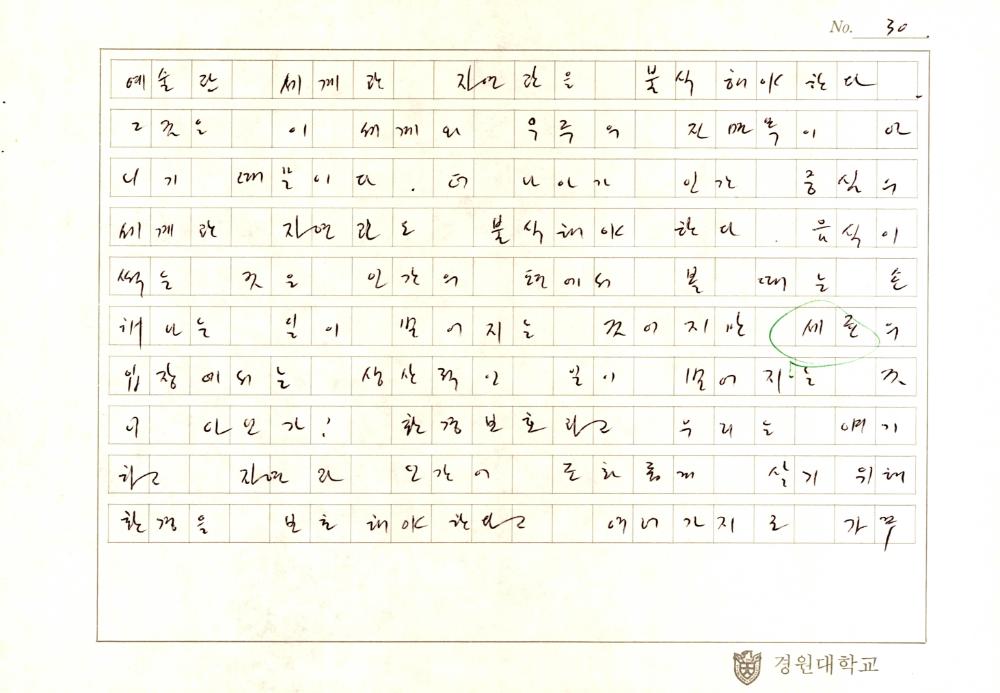 No. 30
예술관 세계관 자연관을 불식해야 한다.
그것은 이 세계와 우주의 진면목이 아
니기 때문이다. 더 나아가 인간 중심의
세계관 자연관도 불식해야 한다. 음식이
썩는 것은 인간의 편에서 볼 때는 손
해나는 일이 벌어지는 것이지만 세균의
입장에서는 생산적인 일이 벌어지는 것
이 아닌가! 환경보호라고 우리는 얘기
하고 자연과 인간이 조화롭게 살기 위해
환경을 보호해야 한다고 여러가지로 가꾸
경원대학교